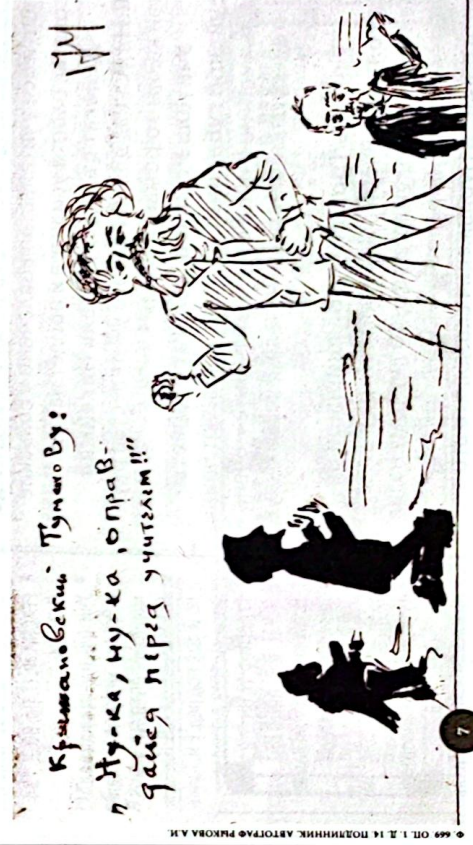 Крыжановский Туманову:
„Ну-ка, ну-ка, оправ-
дайся перед учителем!!”
7
Ф. 669 ОП. 1. Д. 14. ПОДЛИННИК. АВТОГРАФ РЫКОВА А.И.